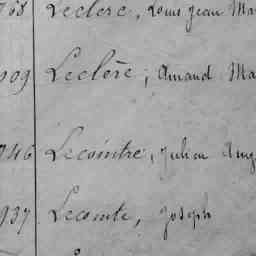 768 Leclerc, Louis Jean Ma
909 Leclère, Amand Ma
946 Lecointre, Julien Aug
937 Lecomte, Joseph